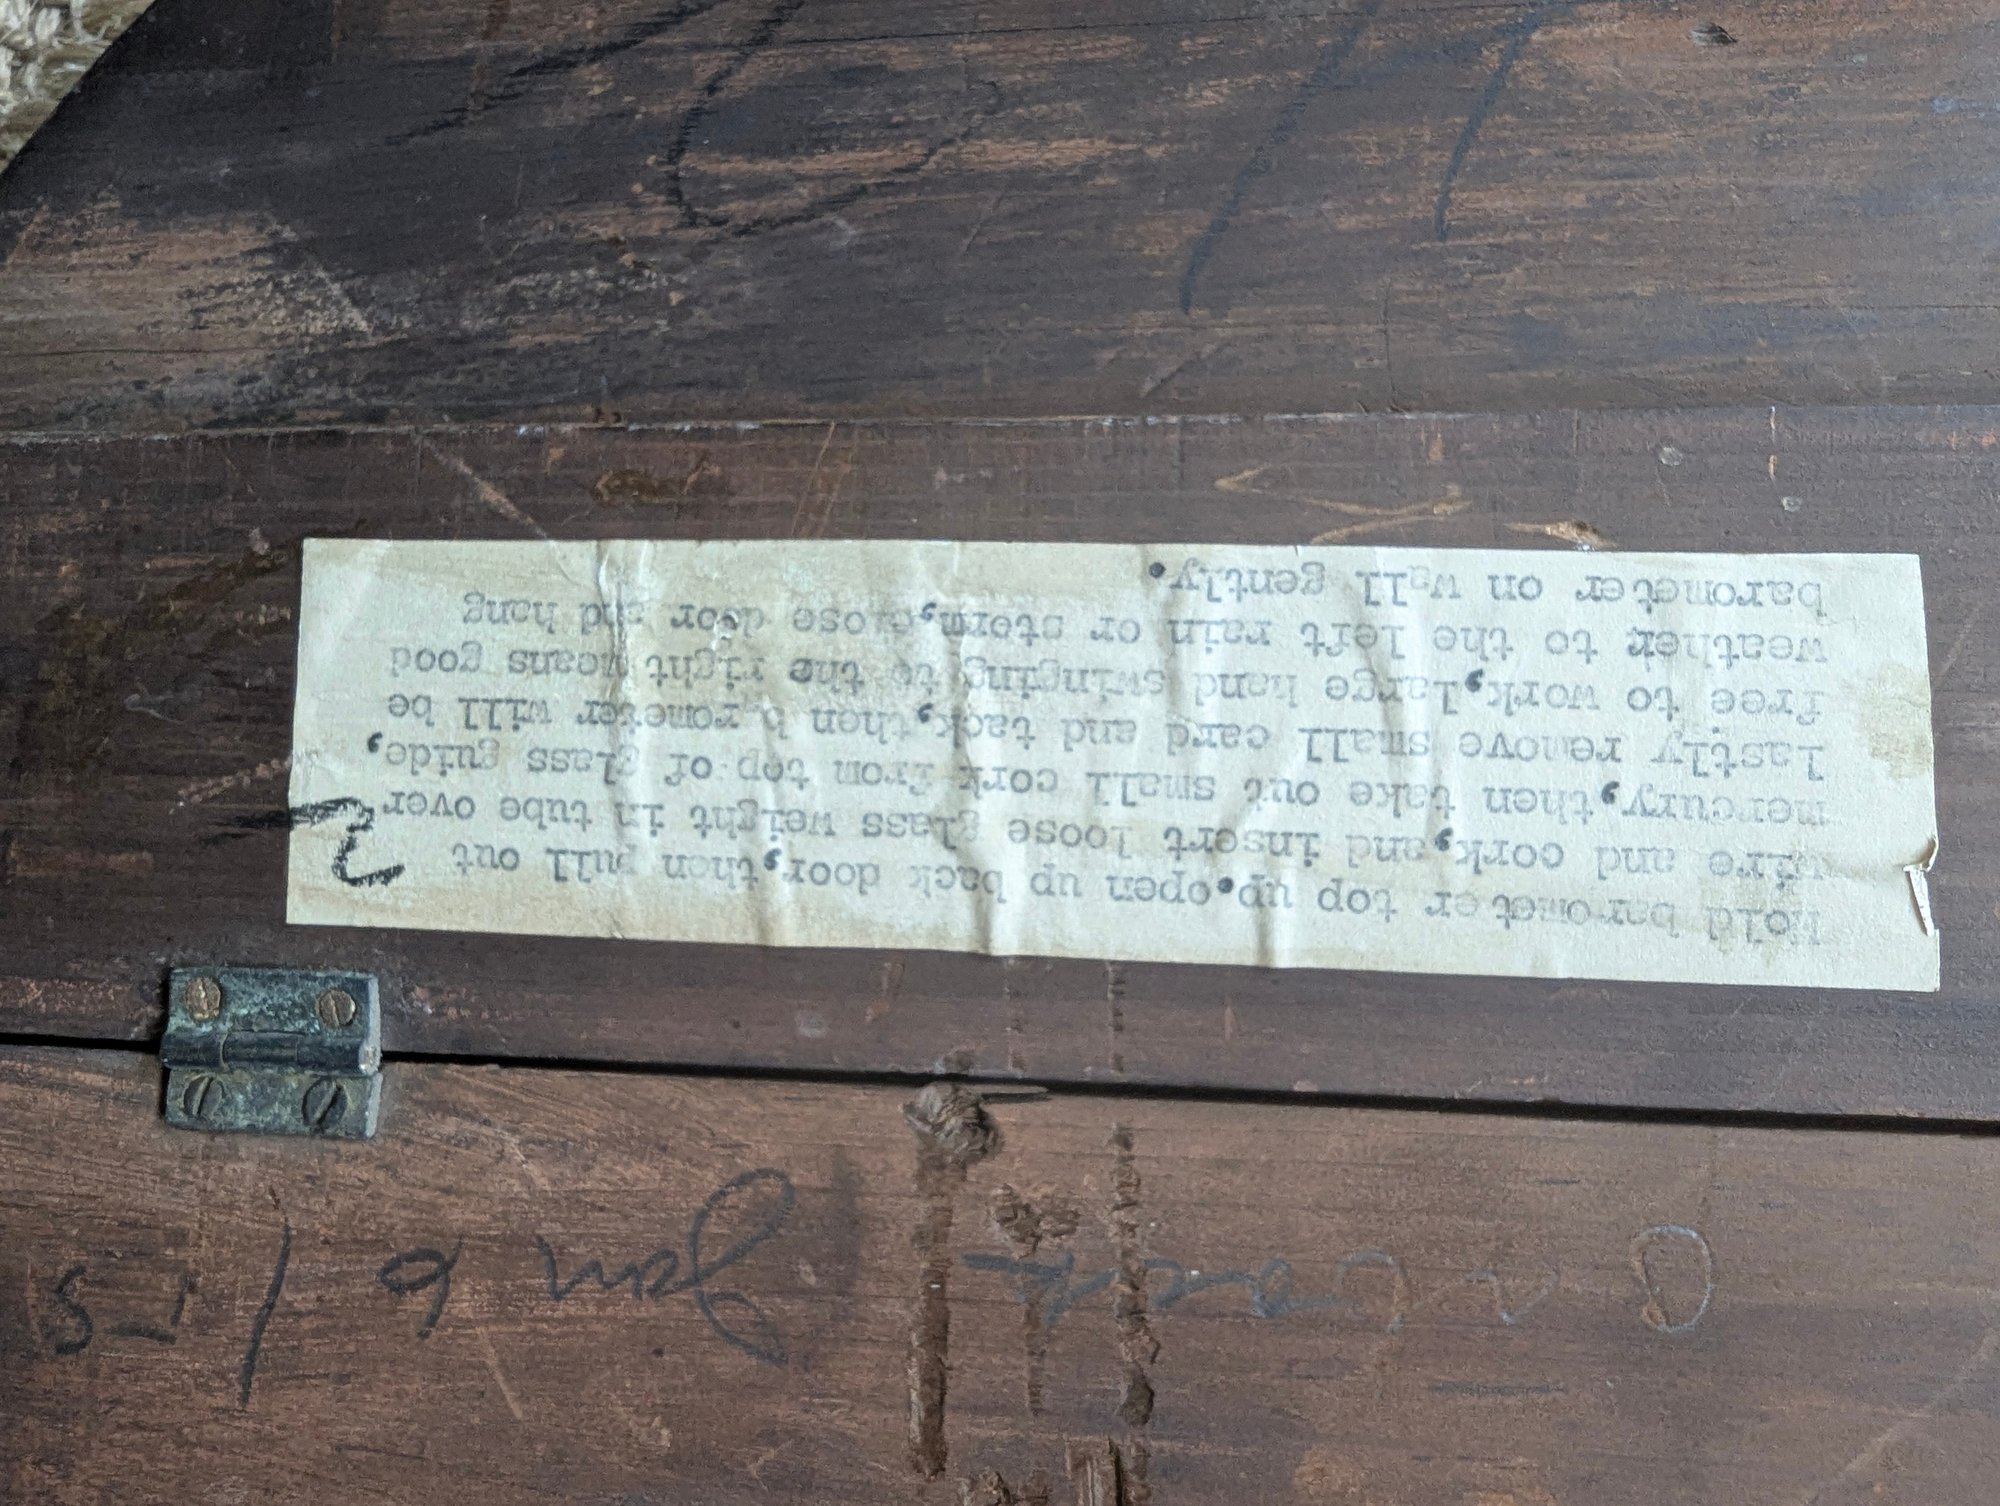 Hold barometer top up.open up back door,then pull out
wire and cork,and insert loose glass weight in tube over
mercury,then take out small cork from top of glass guide,
lastly remove small card and tack,then barometer will be
free to work,large hand swinging to the right means good
weather to the left rain or storm,close door and hang
barometer on wall gently.
2
Jan 6 /